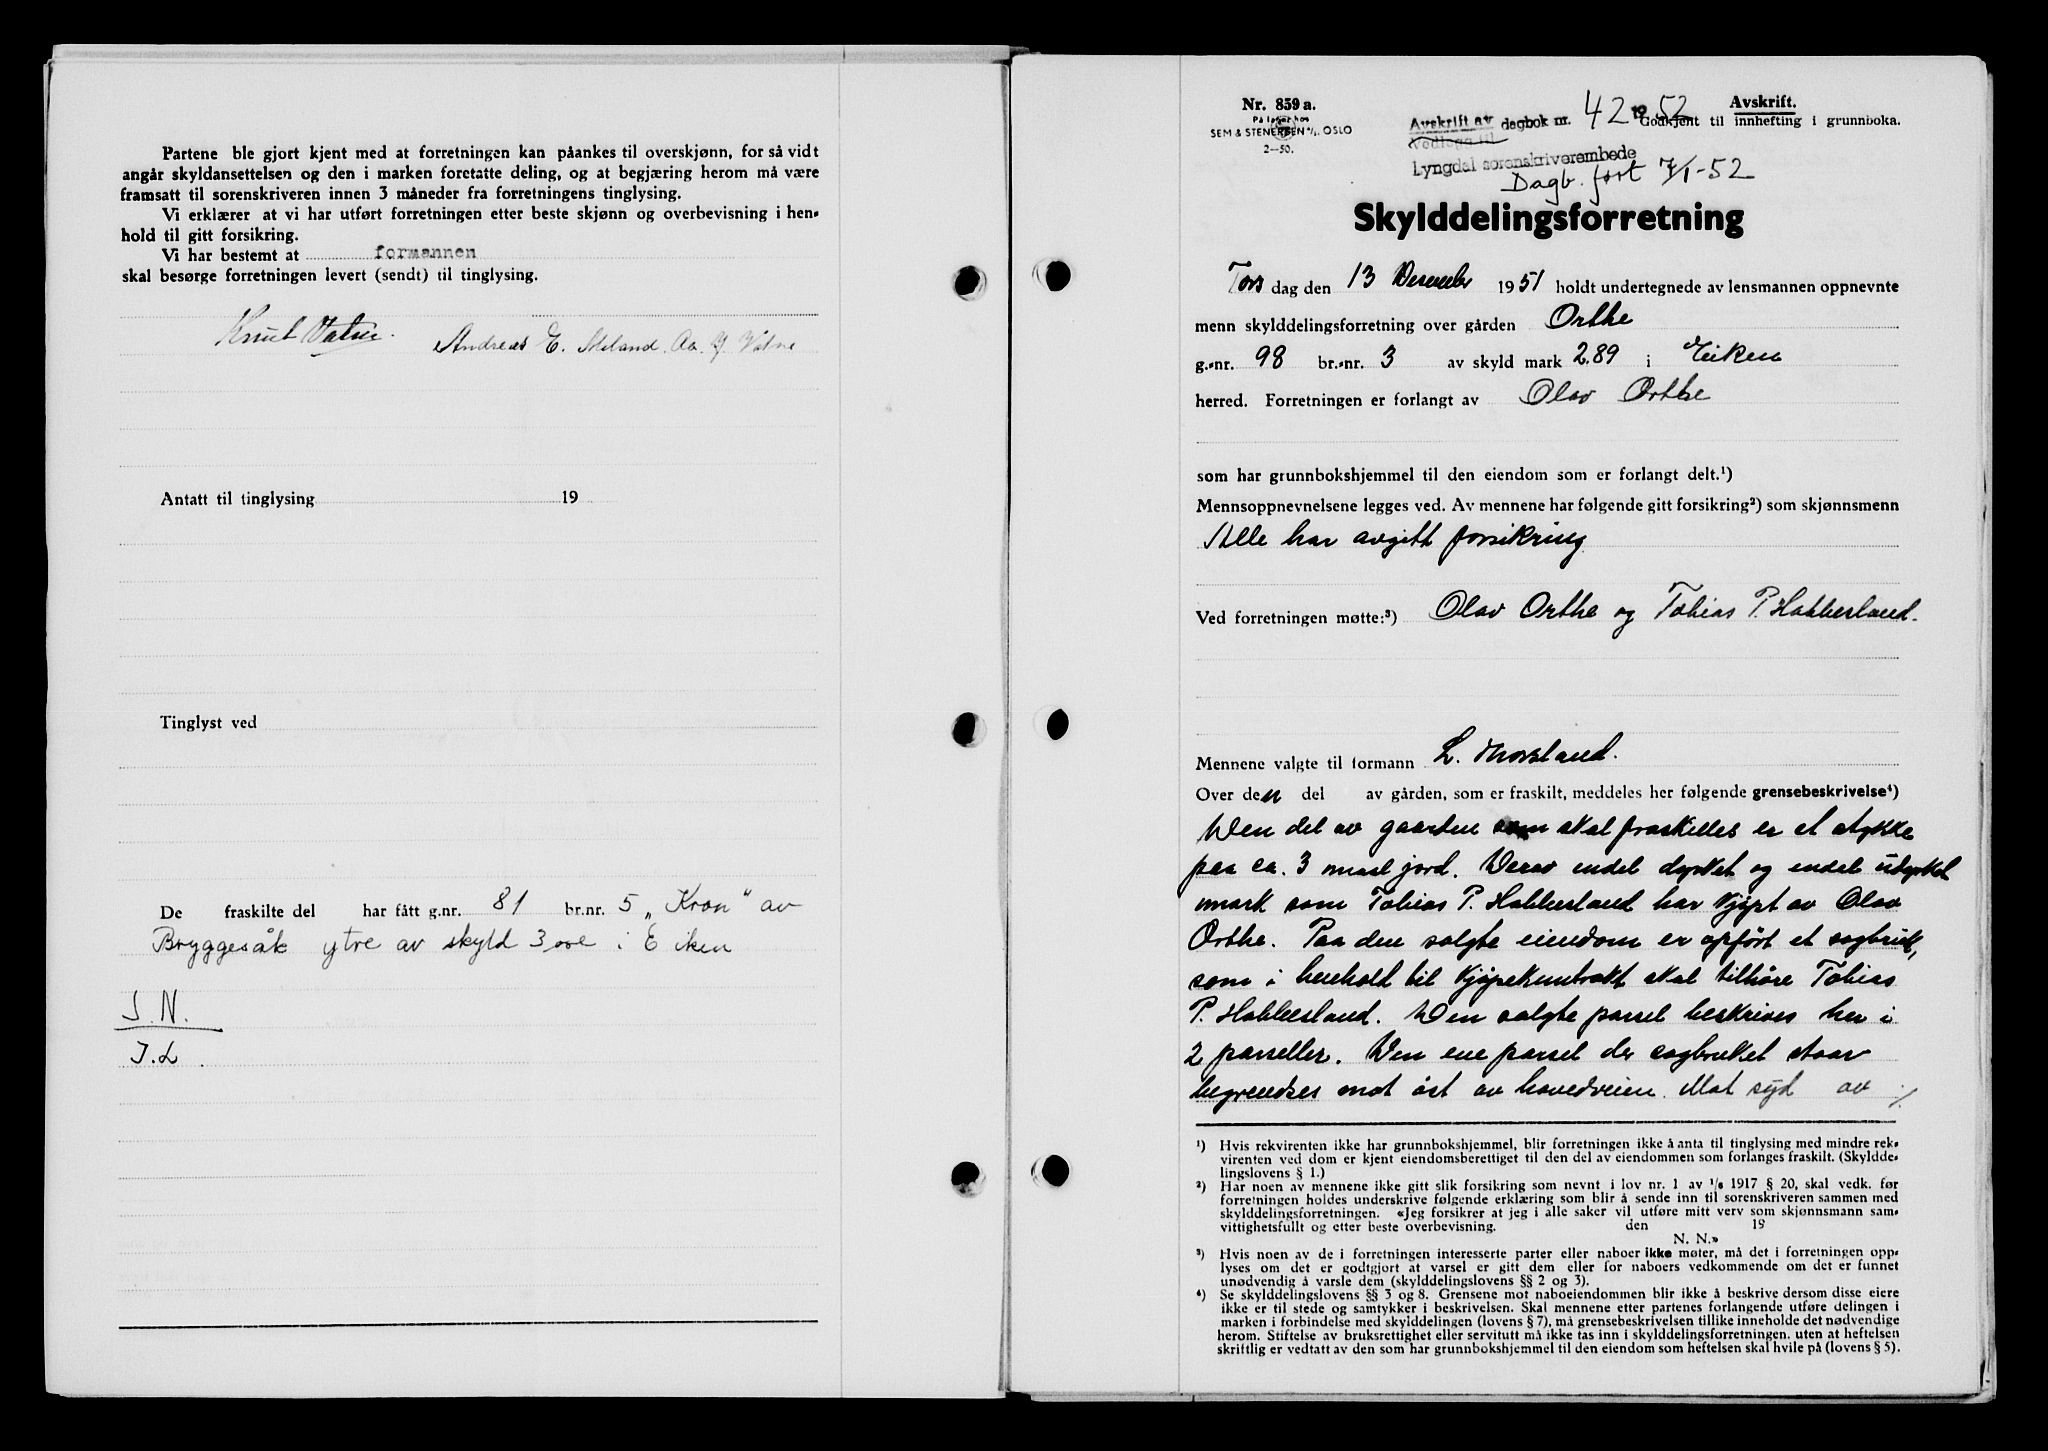 Partene ble gjort kjent med at forretningen kan påankes til overskjønn, for så vidt
angår skyldansettelsen og den i marken foretatte deling, og at begjæring herom må være
framsatt til sorenskriveren innen 3 måneder fra forretningens tinglysing.
Vi erklærer at vi har utført forretningen etter beste skjønn og overbevisning i hen-
hold til gitt forsikring.
Vi har bestemt at formannen
skal besørge forretningen levert (sendt) til tinglysing.
Knut Vatne. Andreas E. Meland. Aa. Y. Vatne
Antatt til tinglysing 19
Tinglyst ved
De fraskilte del har fått g.nr. 81 br.nr. 5 „Kroon" av
Bryggesåk ytre av skyld 3 øre i Eiken
S.N.
J.L.
Nr. 859 a.
På lager hos
SEM & STENERSEN A/S. OSLO
2—50.
Avskrift av dagbok nr. 42 1952
Vedlegg til
Lyngdal sorenskriverembede
Dagb. ført 7/1-52
Avskrift.
Godkjent til innhefting i grunnboka.
Skylddelingsforretning
Tors dag den 13 Desember 1951 holdt undertegnede av lensmannen oppnevnte
menn skylddelingsforretning over gården Orthe
g.-nr. 98 br.-nr. 3 av skyld mark 2.89 i Eiken
herred. Forretningen er forlangt av Olav Orthe
som har grunnbokshjemmel til den eiendom som er forlangt delt.¹)
Mennsoppnevnelsene legges ved. Av mennene har følgende gitt forsikring²) som skjønnsmenn
Alle har avgitt forsikring
Ved forretningen møtte:³) Olav Orthe og Tobias P. Hobbesland.
Mennene valgte til formann L. Thorsland.
Over den del av gården, som er fraskilt, meddeles her følgende grensebeskrivelse⁴)
Den del av gaarden som skal fraskilles er et stykke
paa ca. 3 maal jord. Derav endel dyrket og endel udyrket
mark som Tobias P. Hobbesland har kjøpt av Olav
Orthe. Paa den solgte eiendom er opført et sagbruk,
som i henhold til kjøpekuntrakt skal tilhøre Tobias
P. Hobbesland. Den solgte parsel beskrives her i
2 parseller. Den ene parsel der sagbruket staar
begrendses mot øst av hovedveien. Mot syd av ./.
¹) Hvis rekvirenten ikke har grunnbokshjemmel, blir forretningen ikke å anta til tinglysing med mindre rek-
virenten ved dom er kjent eiendomsberettiget til den del av eiendommen som forlanges fraskilt. (Skyldde-
lingslovens § 1.)
²) Har noen av mennene ikke gitt slik forsikring som nevnt i lov nr. 1 av 1/6 1917 § 20, skal vedk. før
forretningen holdes underskrive følgende erklæring som blir å sende inn til sorenskriveren sammen med
skylddelingsforretningen. «Jeg forsikrer at jeg i alle saker vil utføre mitt verv som skjønnsmann sam-
vittighetsfullt og etter beste overbevisning. den 19
N. N.»
³) Hvis noen av de i forretningen interesserte parter eller naboer ikke møter, må det i forretningen opp-
lyses om det er godtgjort at varsel er gitt dem eller for naboers vedkommende om det er funnet
unødvendig å varsle dem (skylddelingslovens §§ 2 og 3).
⁴) Se skylddelingslovens §§ 3 og 8. Grensene mot naboeiendommen blir ikke å beskrive dersom disse eiere
ikke er til stede og samtykker i beskrivelsen. Skal mennene etter partenes forlangende utføre delingen i
marken i forbindelse med skylddelingen (lovens § 7), må grensebeskrivelsen tillike inneholde det nødvendige
herom. Stiftelse av bruksrettighet eller servitutt må ikke tas inn i skylddelingsforretningen, uten at heftelsen
skriftlig er vedtatt av den som har grunnbokshjemmel til den eiendom som heftelsen skal hvile på (lovens § 5).